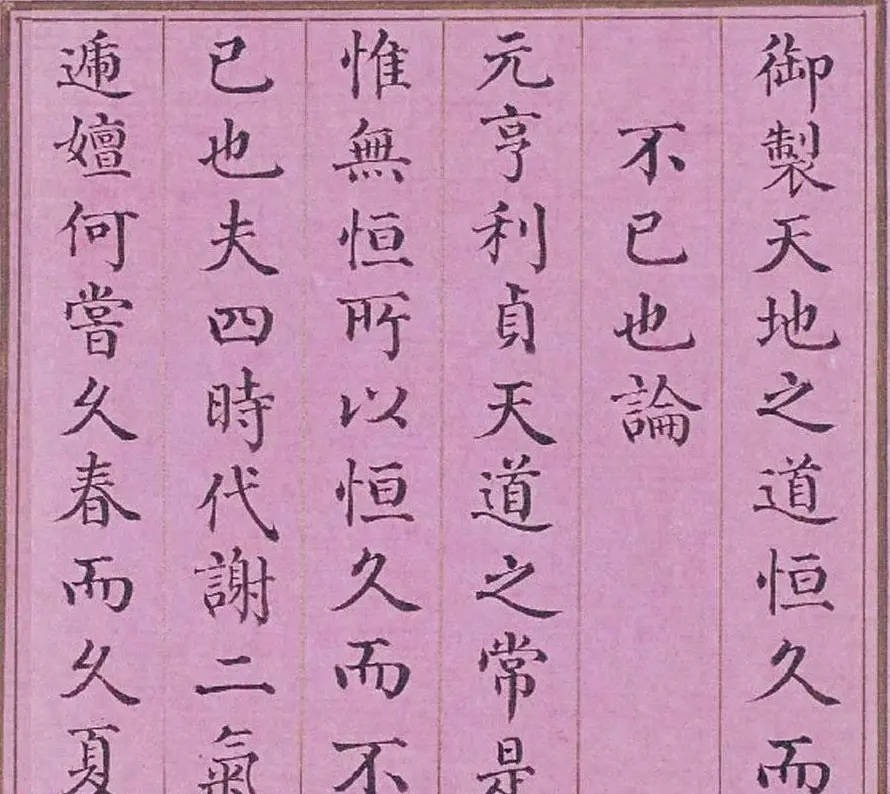 御製天地之道恒久而
不已也論
元亨利貞天道之常是
惟無恒所以恒久而不
已也夫四時代謝二氣
遞嬗何嘗久春而久夏